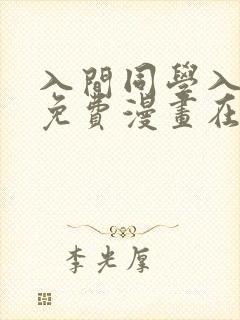 入間同學入
免費漫畫在
李光厚